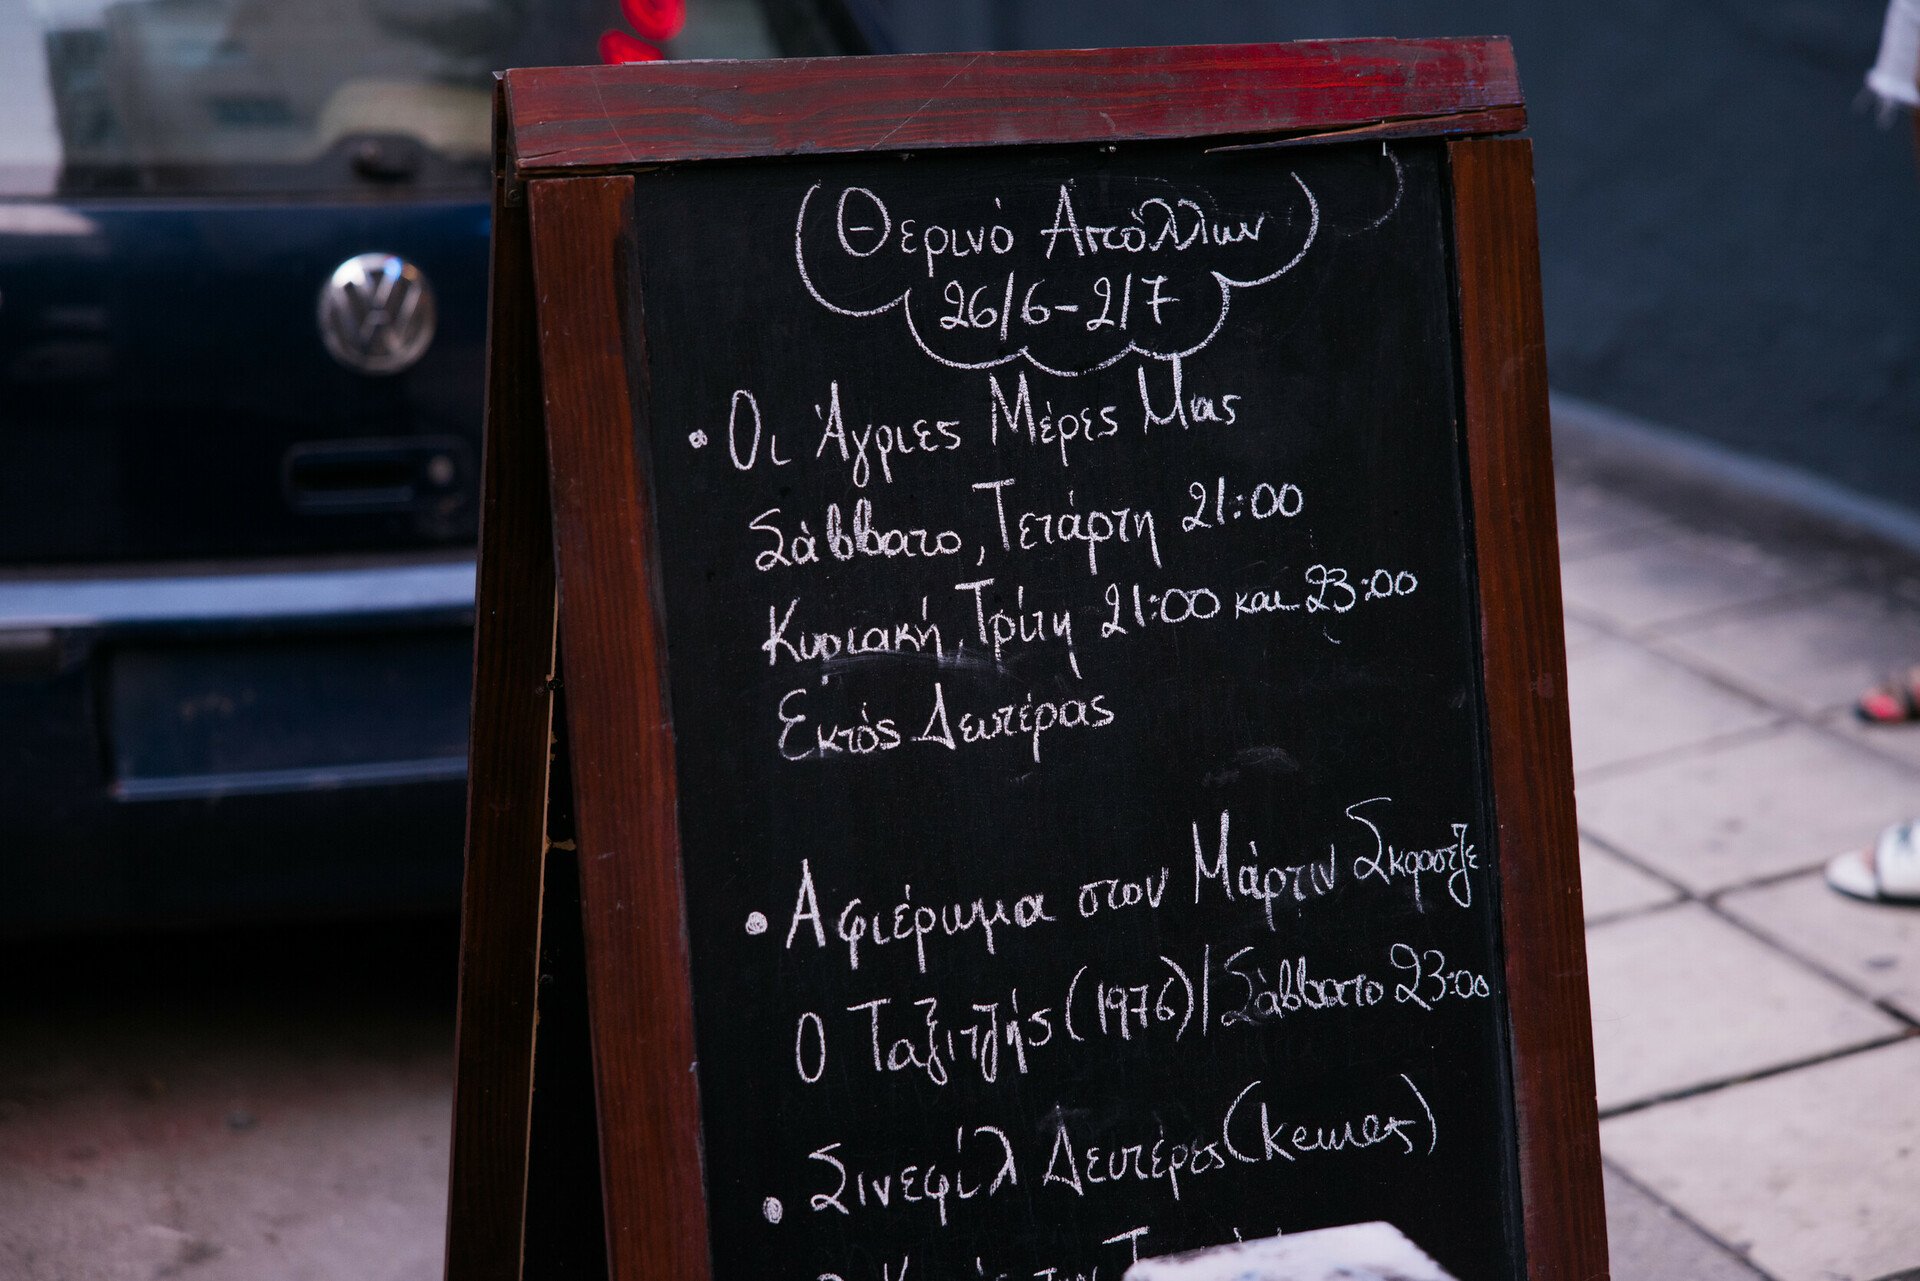 Θερινό Απόλλων
26/6-2/7
• Οι Άγριες Μέρες Μας
Σάββατο, Τετάρτη 21:00
Κυριακή, Τρίτη 21:00 και 23:00
Εκτός Δευτέρας
• Αφιέρωμα στον Μάρτιν Σκορσέζε
Ο Ταξιτζής (1976) / Σάββατο 23:00
• Σινεφίλ Δευτέρες